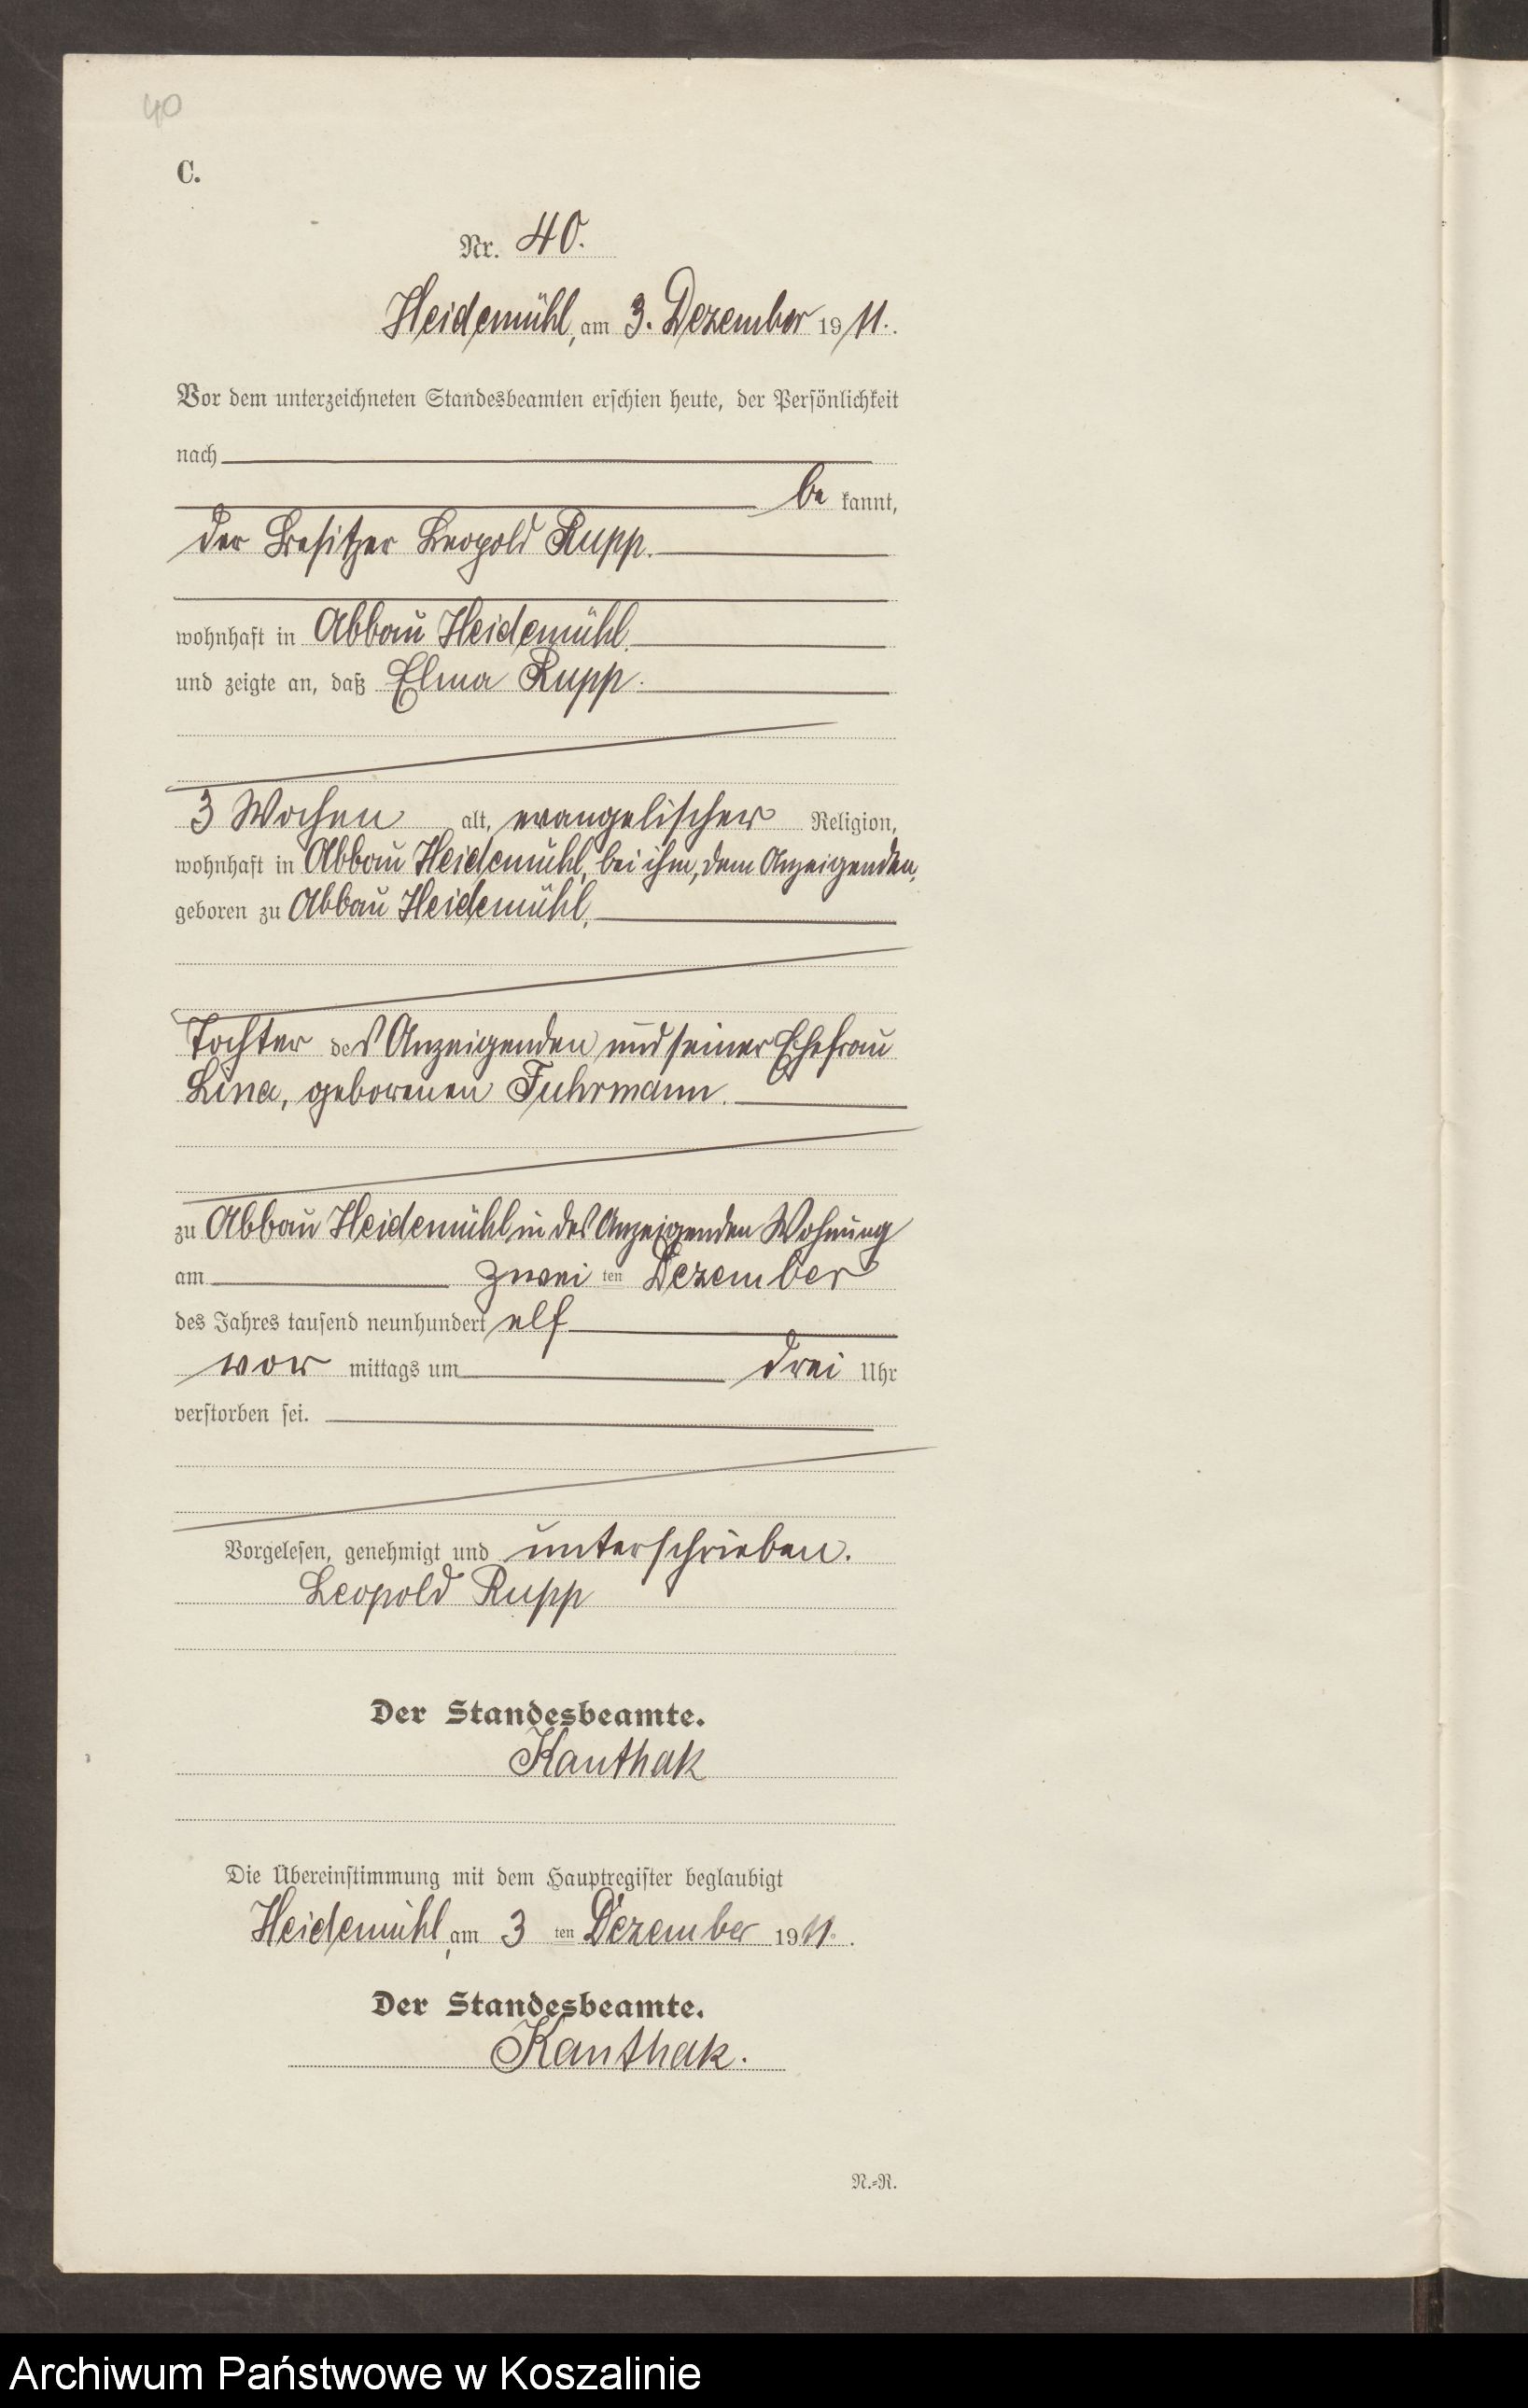 40
C.
Nr. 40.
Heidemühl, am 3. Dezember 1911.
Vor dem unterzeichneten Standesbeamten erschien heute, der Persönlichkeit
nach
be kannt,
der Besitzer Leopold Rupp.
wohnhaft in Abbau Heidemühl,
und zeigte an, daß Elma Rupp.
3 Wochen alt, evangelischer Religion,
wohnhaft in Abbau Heidemühl, bei ihm, dem Anzeigenden,
geboren zu Abbau Heidemühl,
Tochter des Anzeigenden und seiner Ehefrau
Lina, geborenen Fuhrmann.
zu Abbau Heidemühl in des Anzeigenden Wohnung
am zwei ten Dezember
des Jahres tausend neunhundert elf
vor mittags um drei Uhr
verstorben sei.
Vorgelesen, genehmigt und unterschrieben.
Leopold Rupp
Der Standesbeamte.
Kanthak
Die Übereinstimmung mit dem Hauptregister beglaubigt
Heidemühl, am 3 ten Dezember 1911.
Der Standesbeamte.
Kanthak.
N.-R.
Archiwum Państwowe w Koszalinie